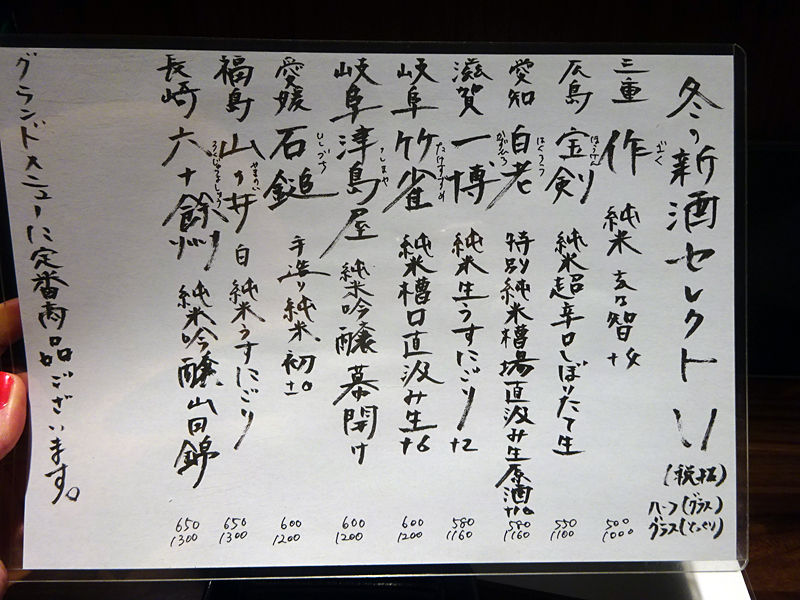 冬の新酒セレクト
(税抜)
ハーフ(グラス)
グラス(とっくり)
三重 作 ざく 純米 玄乃智 +4 500 1000
広島 宝剣 ほうけん 純米超辛口しぼりたて生 550 1100
愛知 白老 はくろう 特別純米槽場直汲み生原酒 580 1160
滋賀 一博 かずひろ 純米生うすにごり +2 580 1160
岐阜 竹雀 たけすずめ 純米槽口直汲み生 +6 600 1200
岐阜 津島屋 つしまや 純米吟醸 幕開け 600 1200
愛媛 石鎚 いしづち 手造り純米 初 ±0 600 1200
福島 山の井 やまのい 白 純米うすにごり 650 1300
長崎 六十餘洲 ろくじゅうよしゅう 純米吟醸 山田錦 650 1300
グランドメニューに定番商品ございます。